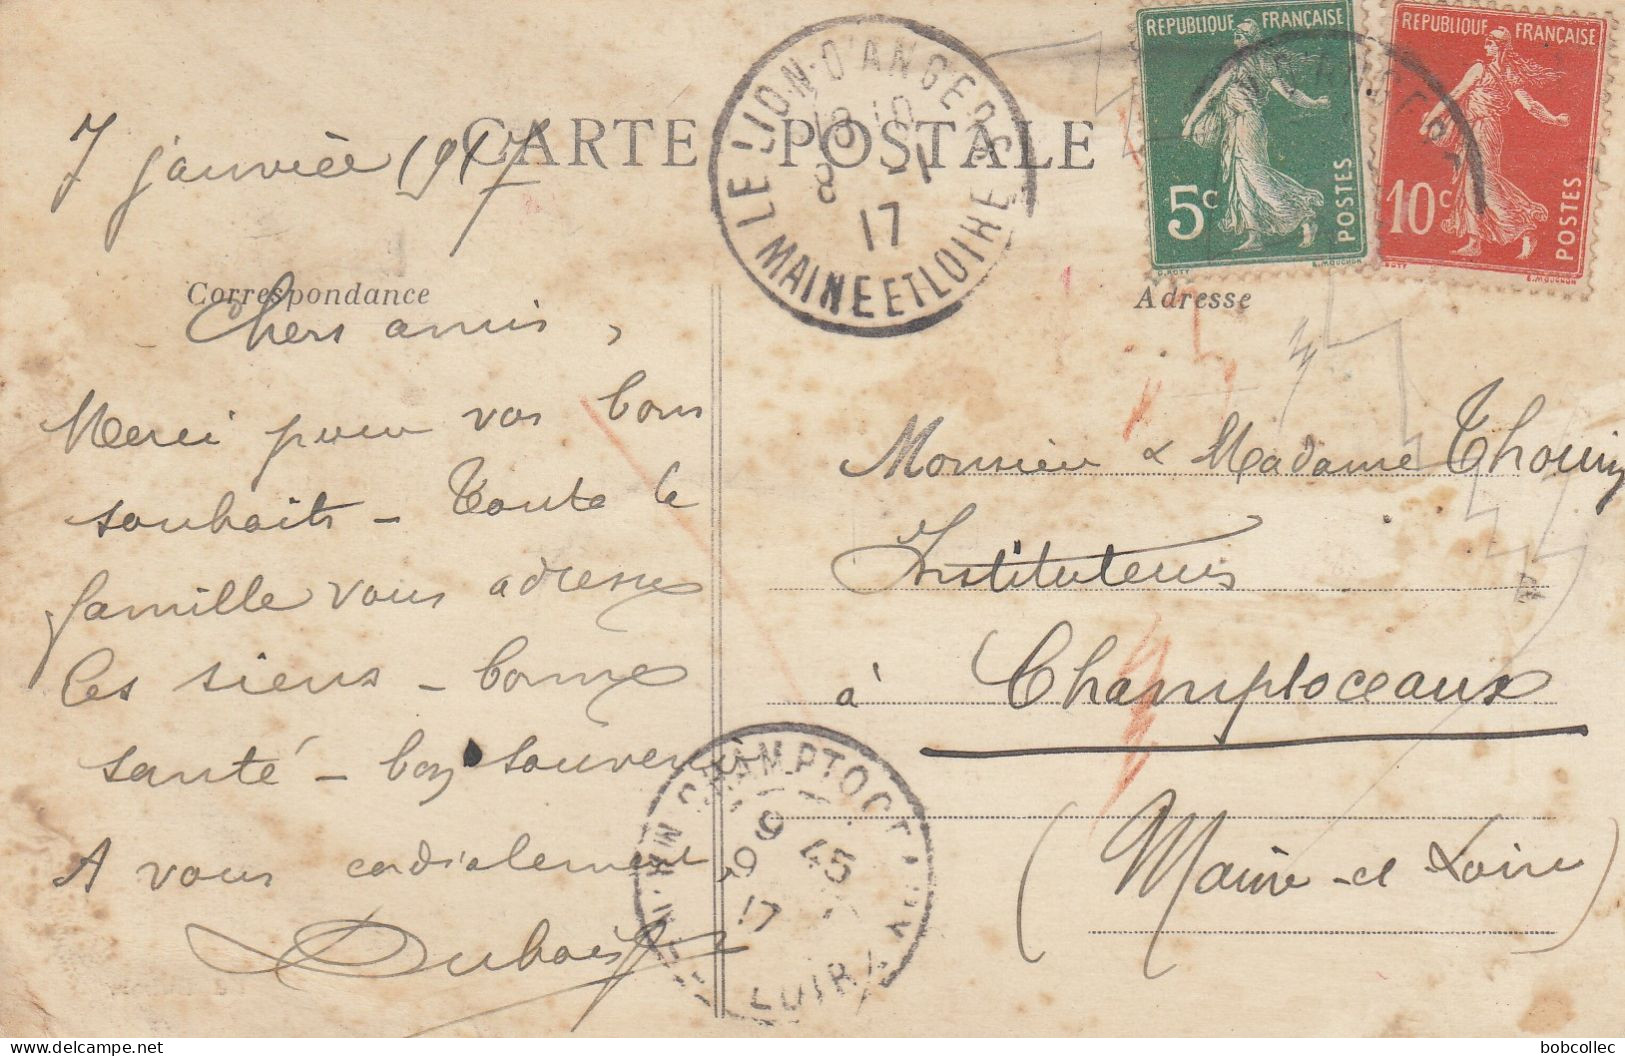 RÉPUBLIQUE FRANÇAISE
5c POSTES
RÉPUBLIQUE FRANÇAISE
10c POSTES
LE LION-D'ANGERS
18 10
8 -1
17
MAINE ET LOIRE
CARTE POSTALE
7 janvier 1917
Correspondance
Chers amis,
Merci pour vos bons
souhaits - Toute la
famille vous adresse
les siens - bonne
santé - bon souvenir
A vous cordialement,
Dubois
Adresse
Monsieur & Madame Thouin
Instituteurs
à Champtoceaux
(Maine-et Loire)
9 45
9
17
LOIRE
bobcollec